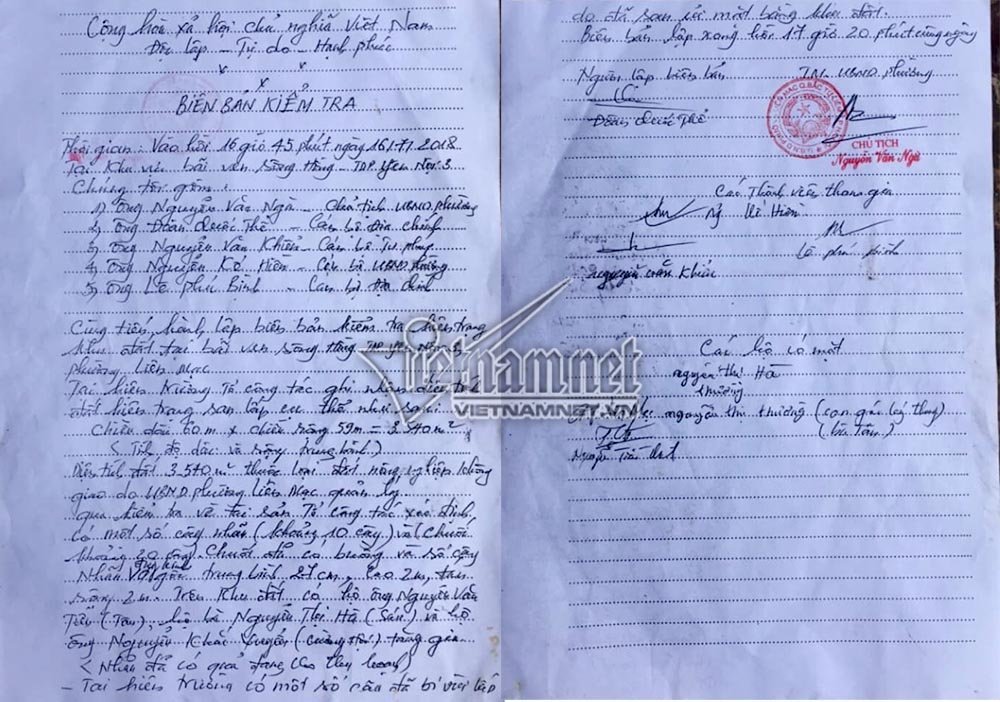 Cộng hòa xã hội chủ nghĩa Việt Nam
Độc lập - Tự do - Hạnh phúc
BIÊN BẢN KIỂM TRA
Thời gian: Vào hồi 16 giờ 45 phút ngày 16/7/2018
Tại khu vực bãi ven sông Hồng - TDP Yên Nội 3
Chúng tôi gồm:
1) Ông Nguyễn Văn Ngà - Chủ tịch UBND phường
2) Ông Đoàn Quốc Thể - Cán bộ địa chính
3) Ông Nguyễn Văn Khiển - Cán bộ Tư pháp
4) Ông Nguyễn Hiền - Cán bộ UBND phường
5) Ông Lê Phú Bình - Cán bộ địa chính
Cùng tiến hành lập biên bản kiểm tra hiện trạng
khu đất tại bãi ven sông Hồng TDP Yên Nội 3
phường Liên Mạc
Tại hiện trường Tổ công tác ghi nhận diện tích
đất hiện trạng san lấp cụ thể như sau:
Chiều dài 60 m x chiều rộng 59m = 3.540 m²
(Tính độ dài và rộng trung bình)
Diện tích đất 3.540 m² thuộc loại đất nông nghiệp không
giao do UBND phường Liên Mạc quản lý
qua kiểm tra về tài sản Tổ công tác xác định
có một số cây nhãn (khoảng 10 cây) và (chuối
khoảng 20 cây) Chuối đã có buồng và số cây
Nhãn gốc trung bình 27 cm, cao 2m, tán
rộng 2m. Trên khu đất có hộ ông Nguyễn Văn
hộ bà Nguyễn Thị Hà (Sán) và hộ
ông Nguyễn Khắc
(Nhãn đã có quả đang cho thu hoạch)
- Tại hiện trường có một số cây đã bị vùi lấp
do đã san ủi mặt bằng khu đất.
Biên bản lập xong hồi 17 giờ 20 phút cùng ngày
Người lập biên bản T.M UBND phường
Đoàn Quốc Thể
CHỦ TỊCH
Nguyễn Văn Ngà
Các thành viên tham gia
Hiền
Lê phú Bình
nguyễn văn Khiển
Các hộ có mặt
nguyễn thị Hà
thường
nguyễn thị thường (con gái
Vietnamnet
VIETNAMNET.VN